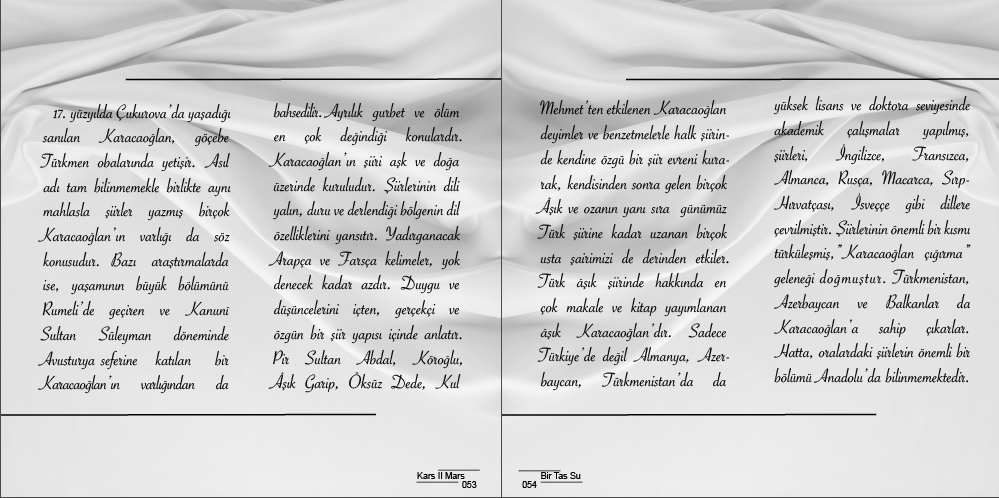 17. yüzyılda Çukurova'da yaşadığı
sanılan Karacaoğlan, göçebe
Türkmen obalarında yetişir. Asıl
adı tam bilinmemekle birlikte aynı
mahlasla şiirler yazmış birçok
Karacaoğlan'ın varlığı da söz
konusudur. Bazı araştırmalarda
ise, yaşamının büyük bölümünü
Rumeli'de geçiren ve Kanuni
Sultan Süleyman döneminde
Avusturya seferine katılan bir
Karacaoğlan'ın varlığından da
bahsedilir. Ayrılık gurbet ve ölüm
en çok değindiği konulardır.
Karacaoğlan'ın şiiri aşk ve doğa
üzerinde kuruludur. Şiirlerinin dili
yalın, duru ve derlendiği bölgenin dil
özelliklerini yansıtır. Yadırganacak
Arapça ve Farsça kelimeler, yok
denecek kadar azdır. Duygu ve
düşüncelerini içten, gerçekçi ve
özgün bir şiir yapısı içinde anlatır.
Pir Sultan Abdal, Köroğlu,
Âşık Garip, Öksüz Dede, Kul
Kars II Mars
053
Mehmet'ten etkilenen Karacaoğlan
deyimler ve benzetmelerle halk şiirin-
de kendine özgü bir şiir evreni kura-
rak, kendisinden sonra gelen birçok
Âşık ve ozanın yanı sıra günümüz
Türk şiirine kadar uzanan birçok
usta şairimizi de derinden etkiler.
Türk âşık şiirinde hakkında en
çok makale ve kitap yayımlanan
âşık Karacaoğlan'dır. Sadece
Türkiye'de değil Almanya, Azer-
baycan, Türkmenistan'da da
yüksek lisans ve doktora seviyesinde
akademik çalışmalar yapılmış,
şiirleri, İngilizce, Fransızca,
Almanca, Rusça, Macarca, Sırp-
Hırvatçası, İsveççe gibi dillere
çevrilmiştir. Şiirlerinin önemli bir kısmı
türküleşmiş, "Karacaoğlan çığırma"
geleneği doğmuştur. Türkmenistan,
Azerbaycan ve Balkanlar da
Karacaoğlan'a sahip çıkarlar.
Hatta, oralardaki şiirlerin önemli bir
bölümü Anadolu'da bilinmemektedir.
Bir Tas Su
054